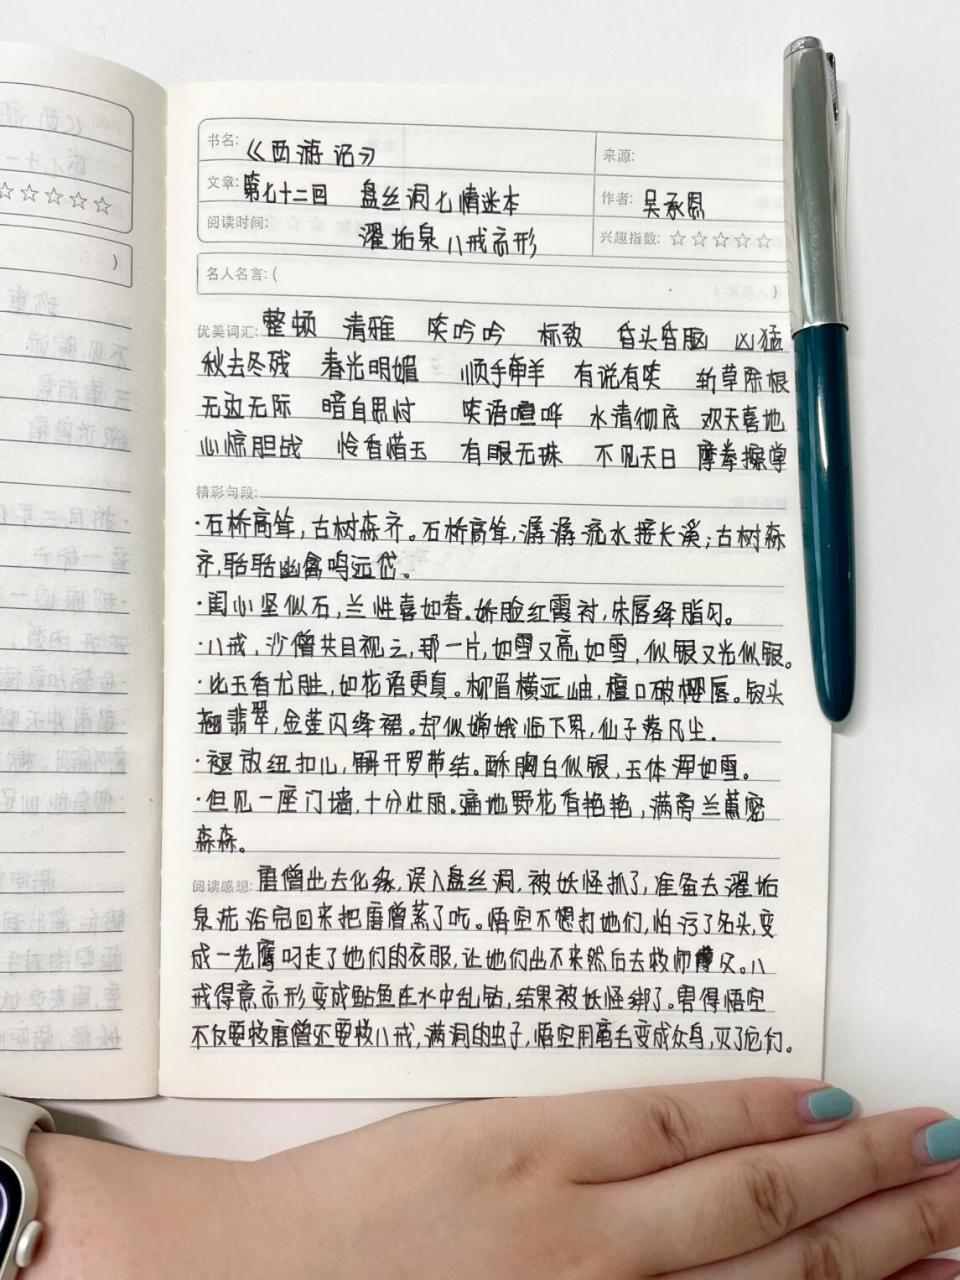 书名: 《西游记》
来源:
文章: 第七十二回 盘丝洞七情迷本
作者: 吴承恩
阅读时间: 濯垢泉八戒忘形
兴趣指数: ☆☆☆☆☆
名人名言: ( )
优美词汇: 整顿 清雅 笑吟吟 标致 昏头昏脑 凶猛
秋去冬残 春光明媚 顺手牵羊 有说有笑 斩草除根
无边无际 暗自思忖 笑语喧哗 水清彻底 欢天喜地
心惊胆战 怜香惜玉 有眼无珠 不见天日 摩拳擦掌
精彩句段:
·石桥高耸,古树森齐。石桥高耸,潺潺流水接长溪;古树森
齐,聒聒幽禽鸣远岱。
·闺心坚似石,兰性喜如春。娇脸红霞衬,朱唇绛脂匀。
·八戒,沙僧共目视之,那一片,如雪又亮如雪,似银又光似银。
·比玉香尤胜,如花语更真。柳眉横远岫,檀口破樱唇。钗头
翘翡翠,金莲闪绛裙。却似嫦娥临下界,仙子落凡尘.
·褪放纽扣儿,解开罗带结。酥胸白似银,玉体浑如雪。
·但见一座门墙,十分壮丽。遍地野花香艳艳,满旁兰蕙密
森森。
阅读感想: 唐僧出去化缘,误入盘丝洞,被妖怪抓了,准备去濯垢
泉洗浴完回来把唐僧蒸了吃。悟空不想打她们,怕污了名头,变
成一老鹰叼走了她们的衣服,让她们出不来然后去救师父。八
戒得意忘形变成鲇鱼在水中乱钻,结果被妖怪绑了。害得悟空
不仅要救唐僧还要救八戒,满洞的虫子,悟空用毫毛变成众鸟,灭了它们。